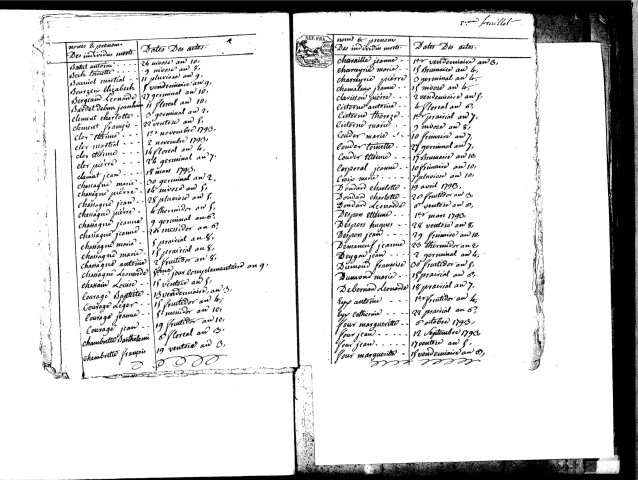 noms & prenom
Des individus morts
Dates Des actes.
Batet antoine 24 nivose an 10,
Bech Lonette 9 nivose an 8,
Bouniol martial 11 pluviose an 9,
Bourgeix Elizabeth 5 vendemiaire an
Bergeaud Leonarde 27 germinal an 10,
11 floreal an 10,
clement charlotte 3 germinal an 2,
clement françois 22 ventose an 5,
cler etienne 1er novembre 1793,
cler martial 2 novembre 1793,
cler etienne 14 floreal an 4,
cler pierre 24 germinal an 7,
clement jean 18 mars 1793,
chassagne marie 30 germinal an 2,
chassagne pierre 14 nivose an 5,
chassagne jean 28 pluviose an 5,
chassagne pierre 4 thermidor an 5,
chassagne jeanne 9 germinal an 6,
chassagne jeanne 26 messidor an 6,
chassagne marie 5 prairial an 8,
chassagne marie 15 prairial an 8,
chassagne antoine 2 fructidor an 8,
chassagne Leonarde jour complementaire an 9,
chassain Louise 15 ventose an 5,
Courage Baptiste 13 vendemiaire an 3,
Courage Leger 15 fructidor an 4,
Courage jeanne 5 messidor an 10,
Courage jean 19 fructidor an 10,
chambrette Barthelemi 6 floreal an 13,
chambrette françois 19 ventose an 3,
2eme feuillet
noms & prenom
Des individus morts
Dates Des actes.
charaille jeanne 1er vendemiaire an 3,
chareyrie marie 15 brumaire an 4,
chareyrie pierre 3 germinal an 4,
chemaleau jeanne 15 nivose an 4,
clavisson pierre 2 vendemiaire an 5,
Cisterne antoine 4 floreal an 6,
Cisterne thereze 1er prairial an 7,
Cisterne marie 9 nivose an 8,
Couder marie 10 frimaire an 7,
Couder Lonette 27 germinal an 7,
Couder Etienne 17 brumaire an 10,
Corporal jeanne 10 frimaire an 10,
Croix marie 7 pluviose an 10,
Doudard charlotte 19 avril 1793,
Doudard charlotte 20 fructidor an 3,
Doudard Leonarde 6 ventose an 6,
Despon etienne 1er mars 1793
Despon hugues 28 ventose an 8,
Despon jean 29 frimaire an 10,
Demaneuf jeanne 23 thermidor an 2,
Deygas jean 2 germinal an 4,
Dumond françoise 30 fructidor an 5,
Dumond marie 15 prairial an 8,
Debernard Leonarde 18 prairial an 7,
Eyx antoine 1er fructidor an 4,
Eyx catherine 28 prairial an 6,
four marguerite 6 octobre 1793,
four jean 12 septembre 1793,
four jean 17 ventose an 5,
four marguerite 15 vendemiaire an 6,